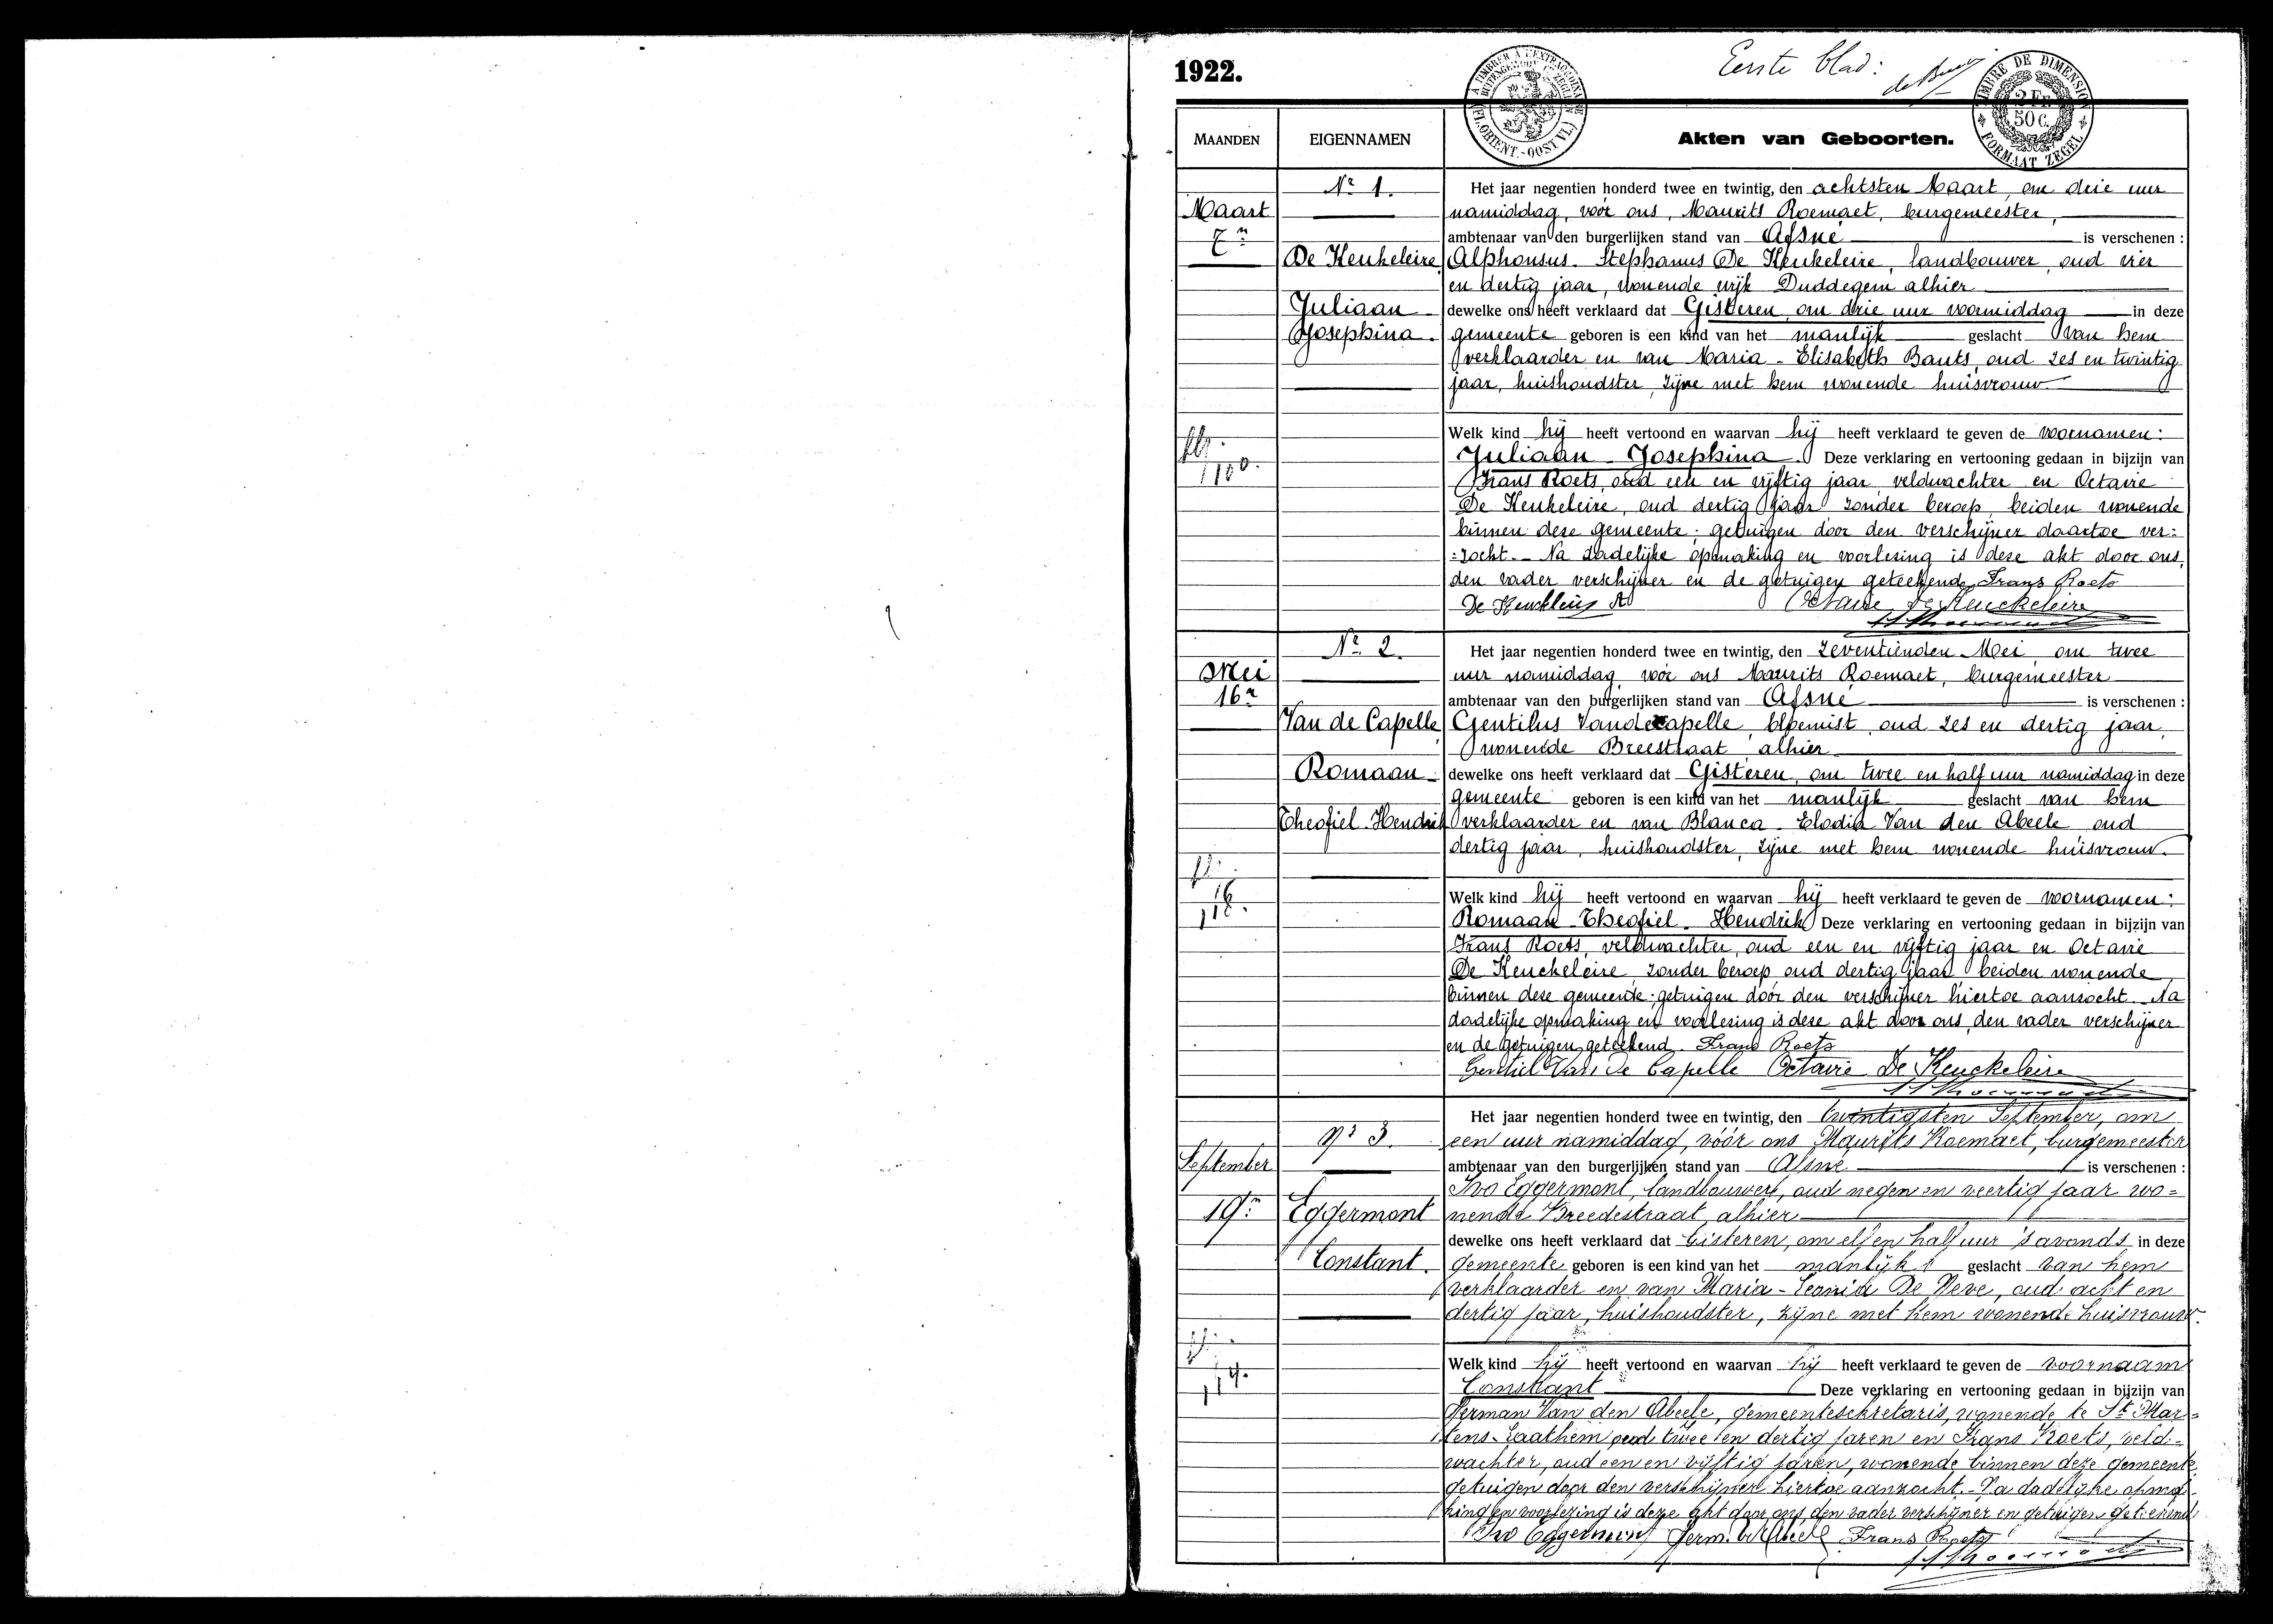 1922.
Eerste blad:
A TIMBRER À L'EXTRAORDINAIRE
(FL. ORIENT.-OOST VL.)
TIMBRE DE DIMENSION
2 Fr.
50 C.
FORMAAT ZEGEL
MAANDEN
EIGENNAMEN
Akten van Geboorten.
Nr 1.
Maart
7n
De Keukeleire,
Juliaan -
Josephina.
Het jaar negentien honderd twee en twintig, den achtsten Maart, om drie uur
namiddag, voór ons, Maurits Roemaet, burgemeester,
ambtenaar van den burgerlijken stand van Afsné is verschenen :
Alphonsus - Stephanus De Keukeleire, landbouwer, oud vier
en dertig jaar, wonende wijk Duddegem alhier
dewelke ons heeft verklaard dat Gisteren, om drie uur voormiddag in deze
gemeente geboren is een kind van het manlijk geslacht van hem
verklaarder en van Maria - Elisabeth Bauts, oud zes en twintig
jaar, huishoudster, zijne met hem wonende huisvrouw.
Welk kind hij heeft vertoond en waarvan hij heeft verklaard te geven de voornamen:
Juliaan - Josephina. Deze verklaring en vertooning gedaan in bijzijn van
Frans Roets, oud een en vijftig jaar, veldwachter en Octavie
De Keukeleire, oud dertig jaar zonder beroep, beiden wonende
binnen deze gemeente; getuigen door den verschijner daartoe ver=
=zocht. - Na dadelijke opmaking en voorlezing is deze akt door ons,
den vader verschijner en de getuigen geteekend. Frans Roets
De Keuckleire A. Octavie De Keuckeleire
Nr 2.
Mei
16n
Van de Capelle,
Romaan -
Theofiel - Hendrik
Het jaar negentien honderd twee en twintig, den zeventienden Mei, om twee
uur namiddag, voór ons Maurits Roemaet, burgemeester
ambtenaar van den burgerlijken stand van Afsné is verschenen :
Gentilus Vandecapelle, bloemist, oud zes en dertig jaar,
wonende Breestraat alhier
dewelke ons heeft verklaard dat Gisteren, om twee en half uur namiddag in deze
gemeente geboren is een kind van het manlijk geslacht van hem
verklaarder en van Blanca - Elodia Van den Abeele, oud
dertig jaar, huishoudster, zijne met hem wonende huisvrouw.
Welk kind hij heeft vertoond en waarvan hij heeft verklaard te geven de voornamen:
Romaan - Theofiel - Hendrik Deze verklaring en vertooning gedaan in bijzijn van
Frans Roets, veldwachter, oud een en vijftig jaar en Octavie
De Keuckeleire zonder beroep oud dertig jaar beiden wonende
binnen deze gemeente; getuigen door den verschijner hiertoe aanzocht. Na
dadelijke opmaking en voorlezing is deze akt door ons, den vader verschijner
en de getuigen geteekend. Frans Roets
Gentiel Van de Capelle Octavie De Keuckeleire
No 3.
September
19n
Eggermont
Constant.
Het jaar negentien honderd twee en twintig, den twintigsten September, om
een uur namiddag, vóór ons Maurits Roemaet, burgemeester
ambtenaar van den burgerlijken stand van Afsné is verschenen :
Ivo Eggermont, landbouwer, oud negen en veertig jaar wo=
nende Breedestraat, alhier
dewelke ons heeft verklaard dat Gisteren, om elf en half uur 's avonds in deze
gemeente geboren is een kind van het manlijk geslacht van hem
verklaarder en van Maria - Leonia De Neve, oud acht en
dertig jaar, huishoudster, zijne met hem wonende huisvrouw.
Welk kind hij heeft vertoond en waarvan hij heeft verklaard te geven de voornaam
Constant Deze verklaring en vertooning gedaan in bijzijn van
Herman Van den Abeele, gemeentesekretaris, wonende te St Mar=
tens-Laathem oud twee en dertig jaren en Frans Roets, veld=
wachter, oud een en vijftig jaren, wonende binnen deze gemeente
getuigen door den verschijner hiertoe aanzocht. - Na dadelijke opma
king en voorlezing is deze akt door ons, den vader verschijner en getuigen geteekend
Ivo Eggermont Herm. Vd Abeele Frans Roets